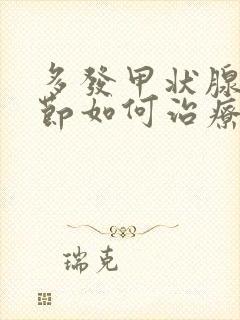 多發甲状腺
節如何治療
瑞克